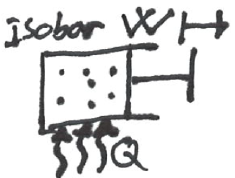 isobar W
Q